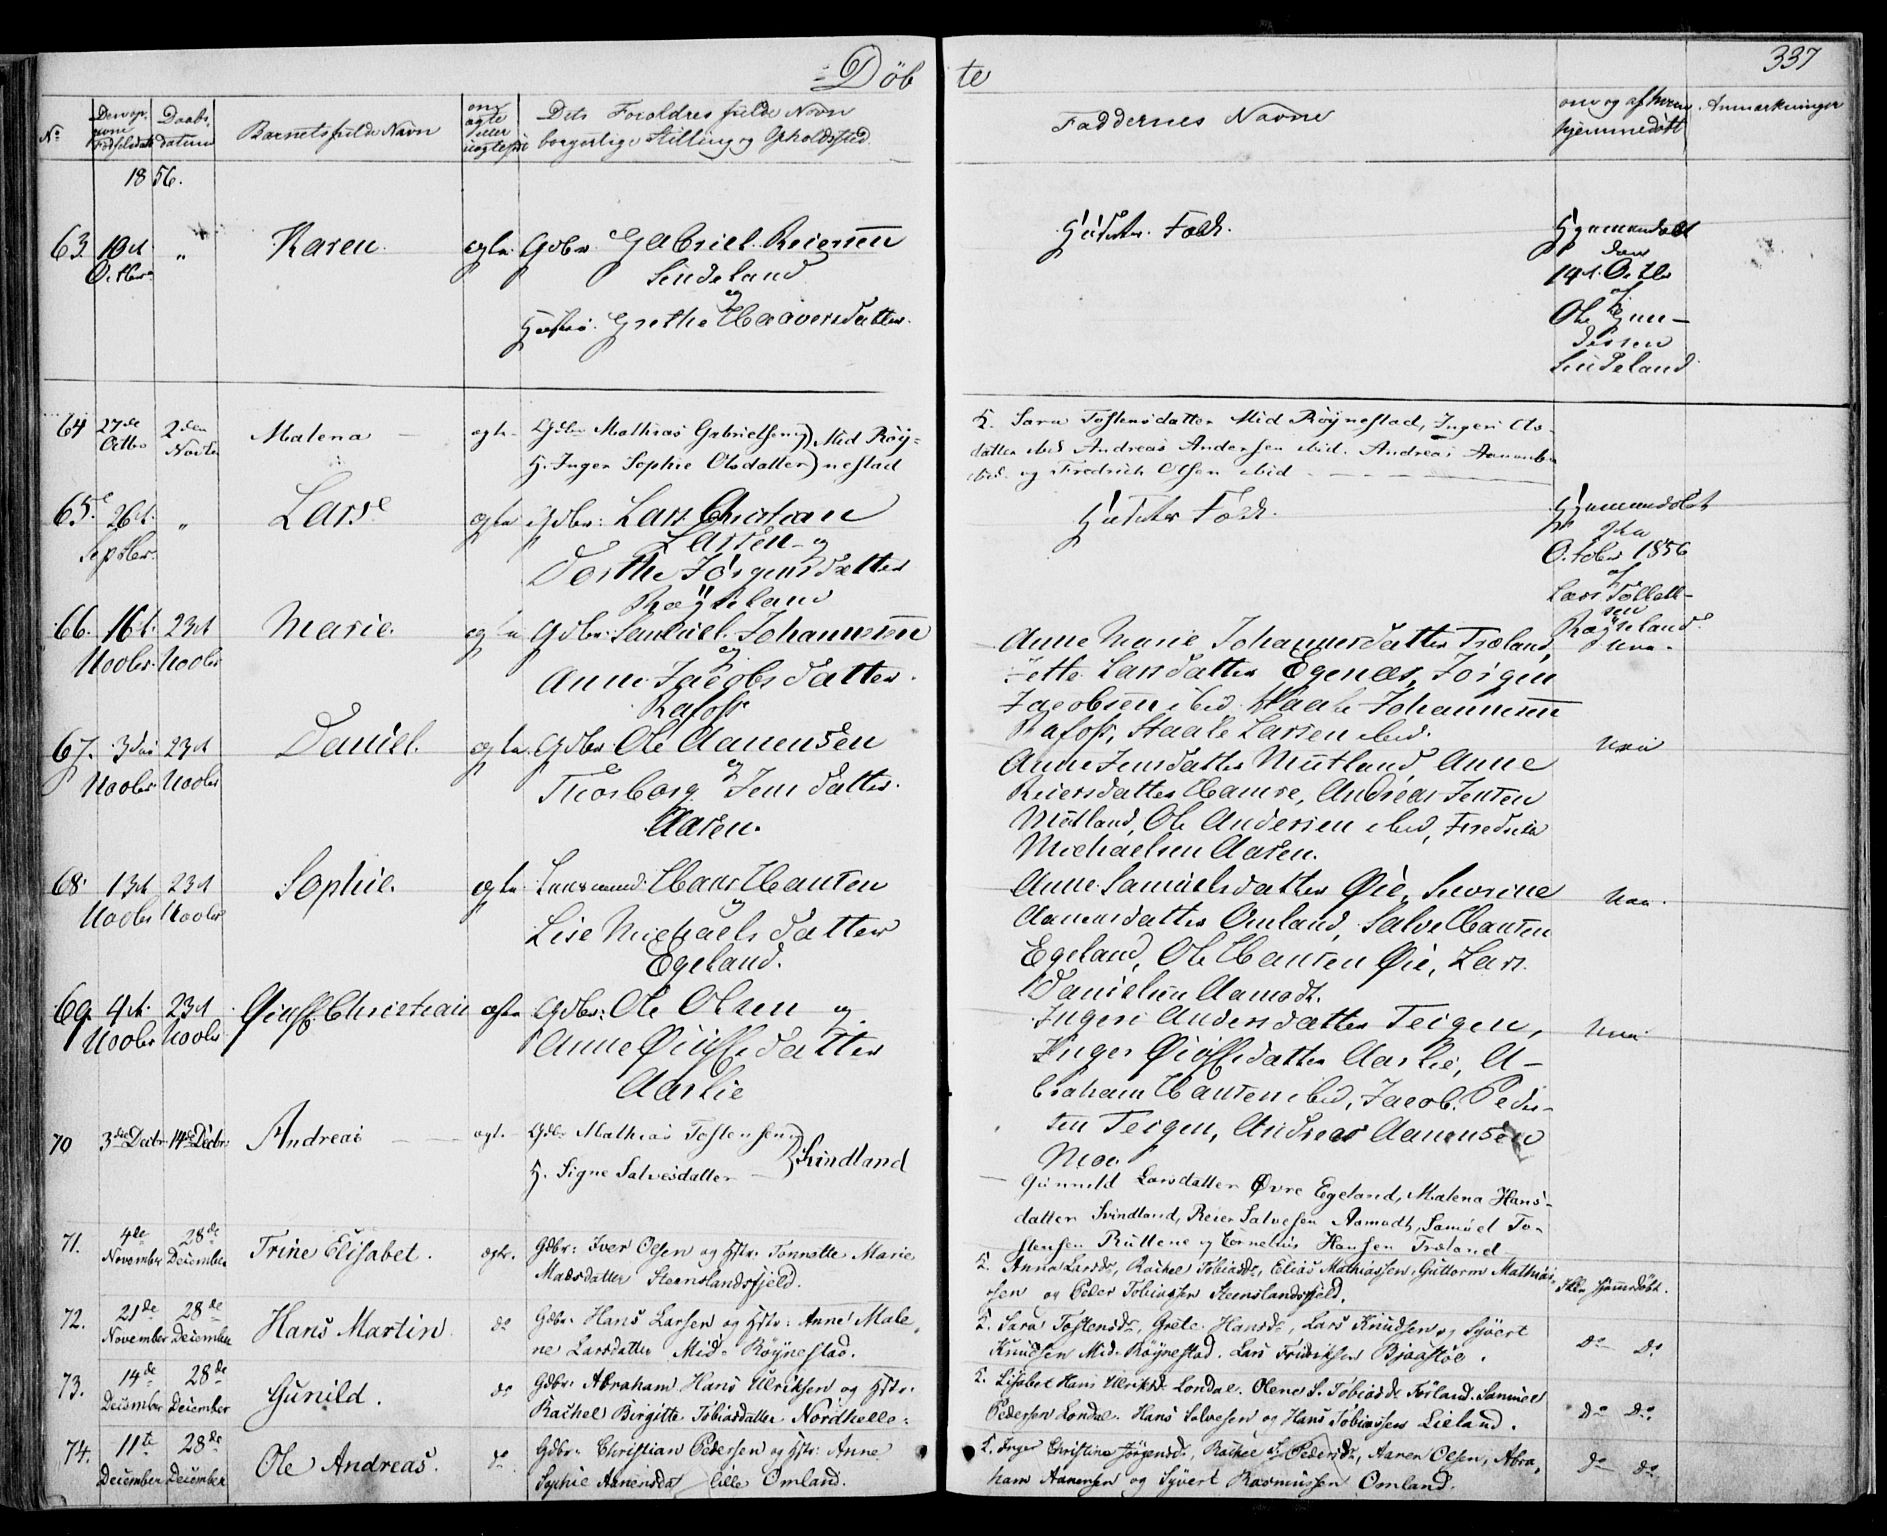 Döb te
337
No
Barnets fulde Navn
Dets Foroldres fulde Navn
borgerlige Stilling og Opholdssted.
Faddernes Navne
om og af hvem
hjemmedöbt
Anmærkninger
1856.
63. 10d Octbr " Karen. ægte Gdbr. Gabriel Reiersen
Sindeland
og
Grethe Haaversdatter.
Hjemmedöbt
den
14d. Octbr
af
Ole
Sindeland
64 27de Octbr 2den Novbr Malena ægte Gdbr. Mathias Gabrielsen Mid Röy-
H. Inger Sophie Olsdatter nestad
F. Sara Tostensdatter Mid Röynestad, Ingeri Ols-
datter ibid Andreas Andersen ibid. Andreas
ibid. og Fredrich Olsen ibid
65. 26d. Septbr. " Lars ægte Gdbr: Lars Christian
Larsen og
Dorthe Jörgensdatter
Röyseland
Hjemmedöbt
October 1856
af
Lars Tollef-
sen
Röyseland.
66. 16d. Novbr. 23d Novbr Marie. ægte Gdbr. Samuel Johannessen
og
Anne Jacobsdatter.
Rafoss
Anne Marie Johannesdatter Træland,
Jette Larsdatter Egenæs, Jörgen
Jacobsen ibid Johannessen
Rafoss, Staale Larsen ibid.
67. 3die Novbr. 23d Novbr Daniel. ægte. Gdbr. Ole Aanensen
og
Thorborg Jensdatter.
Aasen.
Anne Jensdatter Mütland Anne
Reiersdatter Hamre, Andreas Jensen
Mütland, Ole Andersen ibid, Fredrik
Michaelsen Aasen.
68. 13d Novbr 23d Novbr Sophie. ægte. Hans Hansen
og
Lise Michaelsdatter
Egeland.
Anne Samuelsdatter Øie, Severine
Aanensdatter Omland, Salve Hansen
Egeland, Ole Hansen Øie, Lars
Danielsen Aamodt.
69. 4d. Novbr 23d Novbr Christian ægte Gdbr: Ole Olsen og
Anne
Aarlie
Ingeri Andersdatter Teigen,
Inger Aarlie, A-
braham Hansen ibid, Jacob Peder-
sen Teigen, Andreas Aanensen
Moe.
70 3die Decbr 14de Decbr: Andreas ægte. Gdbr Mathias Tostensen
H. Signe Salvesdatter Svindland
Gunnild Larsdatter Øvre Egeland, Malena Hans-
datter Svindland, Reier Salvesen Aamodt, Samuel To-
stensen Ruttene og Cornelius Hansen Træland
71. 4de November 28de December Trine Elisabet. ægte. Gdbr: Iver Olsen og Hstr: Tonnette Marie
Madsdatter Steenslandsfjeld.
F. Anna Larsd., Rachel Tobiasd., Elias Mathiassen, Guttorm Mathias-
sen og Peder Tobiassen Steenslandsfjeld.
Ikke hjemmedöbt.
72. 21de November 28de December Hans Martin. do Gdbr. Hans Larsen og Hstr: Anne Male-
ne Larsdatter Mid-Röynestad.
F. Sara Tostensd., Grete Hansd., Lars Knudsen og Syvert
Knudsen Mid-Röynestad. Lars Fridriksen Bjaastöe.
do do
73. 14de December 28de December Gunild. do Gdbr. Abraham Hans Ulriksen og Hstr:
Rachel Birgitte Tobiasdatter Nordhelle.
F. Lisabet Hans Ulriksd. Londal. Olene S. Tobiasd. Förland. Samuel
Pedersen Londal. Hans Salvesen og Hans Tobiassen Lieland.
do do
74. 11te December 28de December Ole Andreas. do Gdbr: Christian Pedersen og Hstr: Anne
Sophie Aanensdat lille Omland.
F. Inger Christine Jörgensd., Rachel Pedersd., Aanen Olsen, Abra-
ham Aanensen og Syvert Rasmussen Omland.
do do